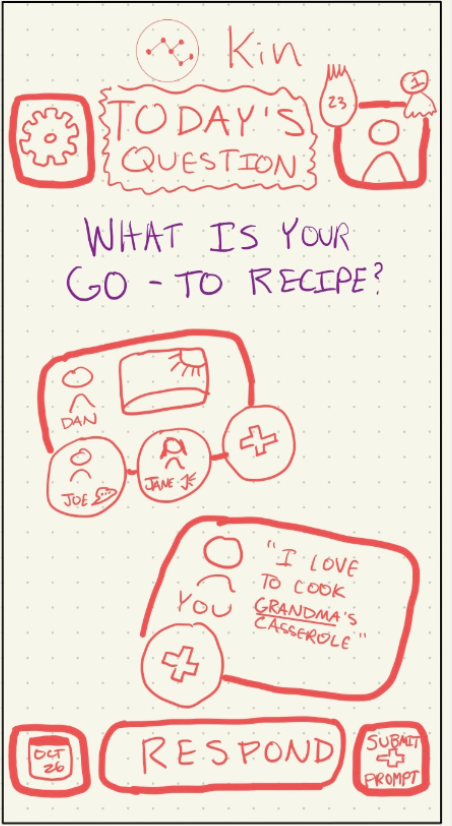 Kin
TODAY'S
QUESTION
23
1
WHAT IS YOUR
GO-TO RECIPE?
DAN
JOE
JANE
"I LOVE
TO COOK
GRANDMA'S
CASSEROLE"
YOU
OCT
26
RESPOND
SUBMIT
PROMPT